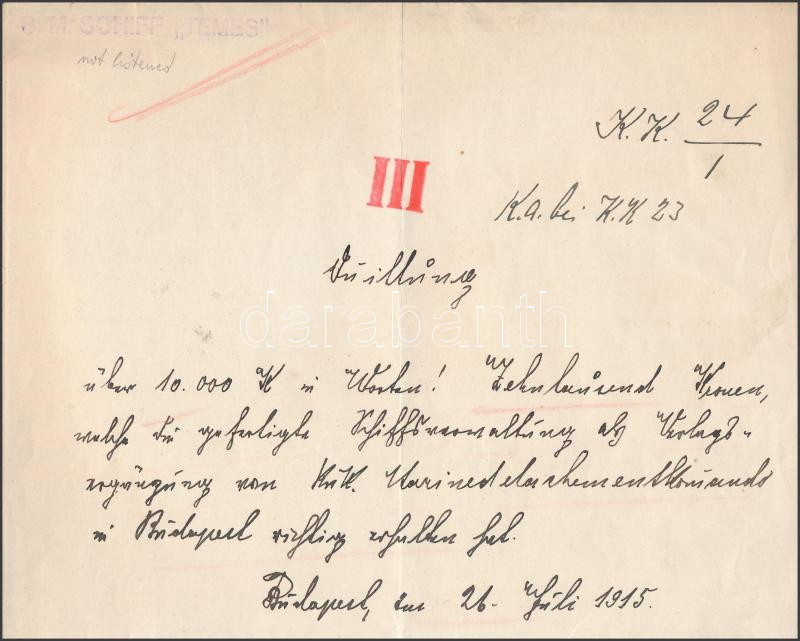 S. M. SCHIFF „TEMES"
K.K. 24/1
III
K.a. bei K.K 23
Quittung
darabanth
über 10.000 K in Worten! Zehntausend Kronen,
welche die gefertigte Schiffsverwaltung als Verlags-
ergänzung von KuK. Marinedetachementkomando
in Budapest richtig erhalten hat.
Budapest, am 26. Juli 1915.